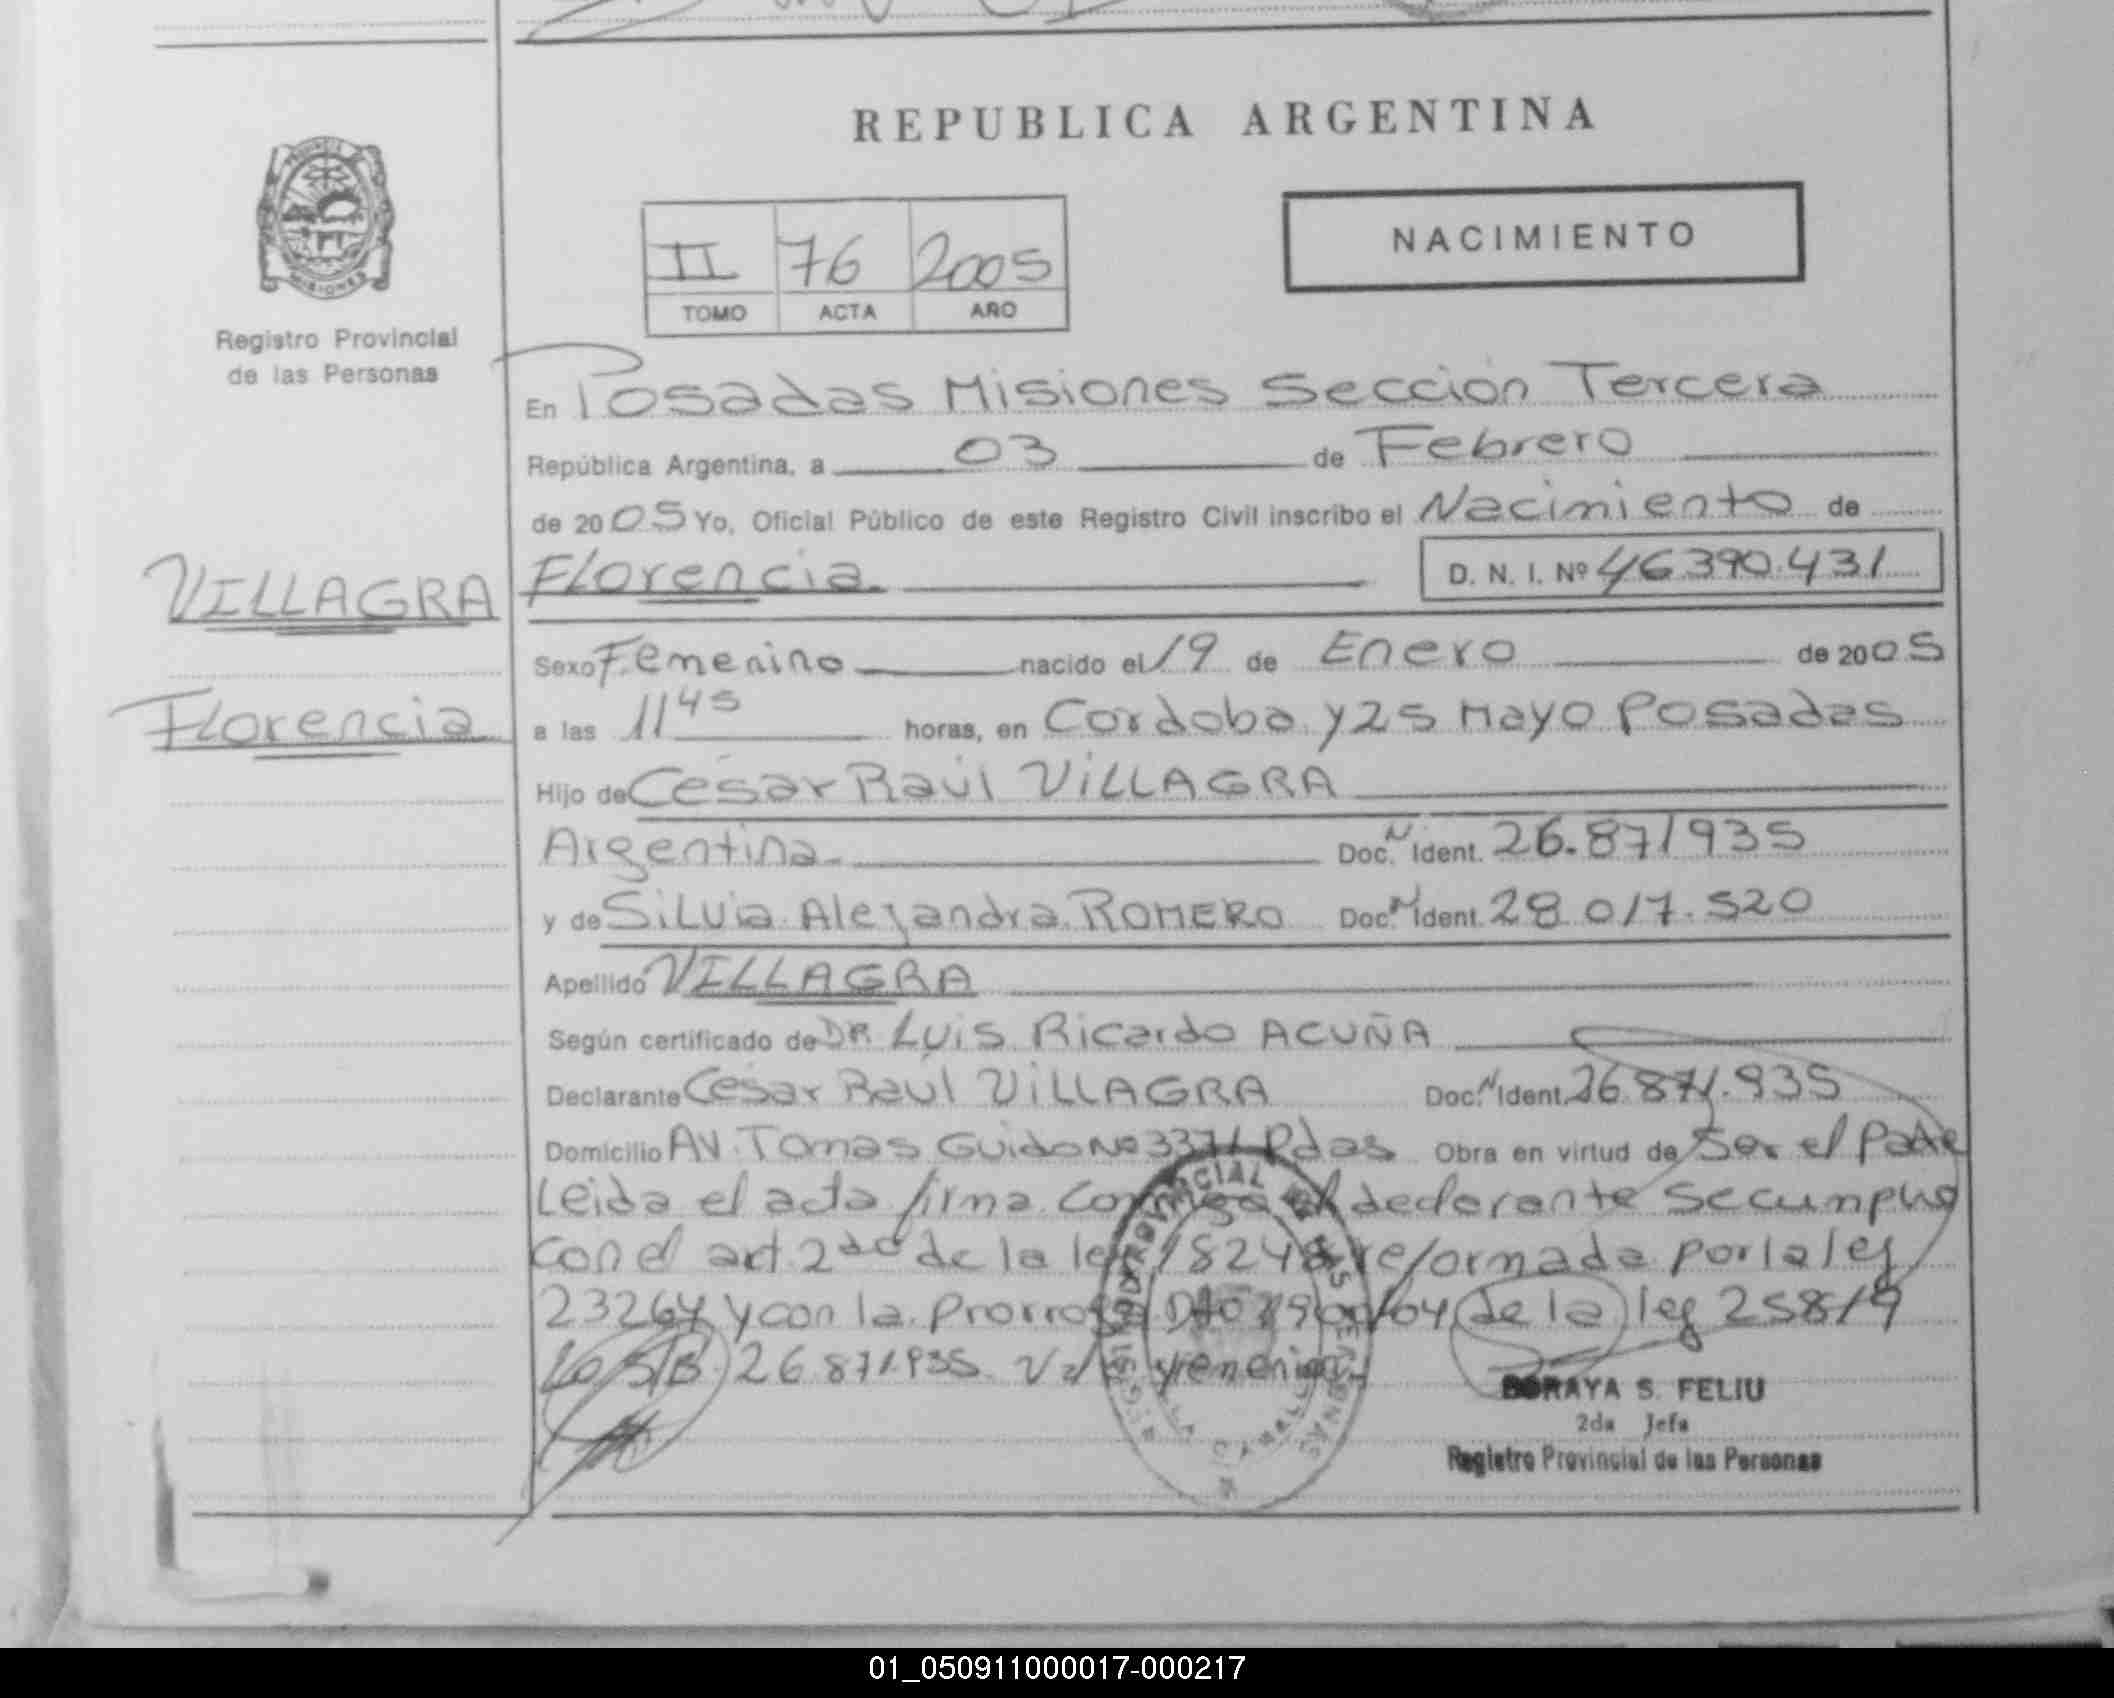 REPUBLICA ARGENTINA
PROVINCIA
MISIONES
Registro Provincial
de las Personas
II 76 2005
TOMO ACTA AÑO
NACIMIENTO
En Posadas Misiones Sección Tercera
República Argentina, a 03 de Febrero
de 2005 Yo, Oficial Público de este Registro Civil inscribo el Nacimiento de
VILLAGRA
Florencia
Florencia D. N. I. Nº 46.390.431
Sexo Femenino nacido el 19 de Enero de 2005
a las 11 45 horas, en Cordoba y 25 Mayo Posadas
Hijo de César Raúl VILLAGRA
Argentina Doc. N Ident. 26.871935
y de Silvia Alejandra ROMERO Doc. N Ident. 28.017.520
Apellido VILLAGRA
Según certificado de DR. Luis Ricardo ACUÑA
Declarante César Raúl VILLAGRA Doc. N Ident. 26.871.935
Domicilio AV. Tomas Guido Nº 3371 Pdas Obra en virtud de Ser el Padre
Leida el acta firma conmigo el declarante Se cumplio
con el art. 2do de la ley 18248 reformada por la ley
23264 y con la Prorroga Dto 1900/04 de la ley 25819
S/B 26.871.935
SORAYA S. FELIU
2da Jefa
Registro Provincial de las Personas
01_050911000017-000217